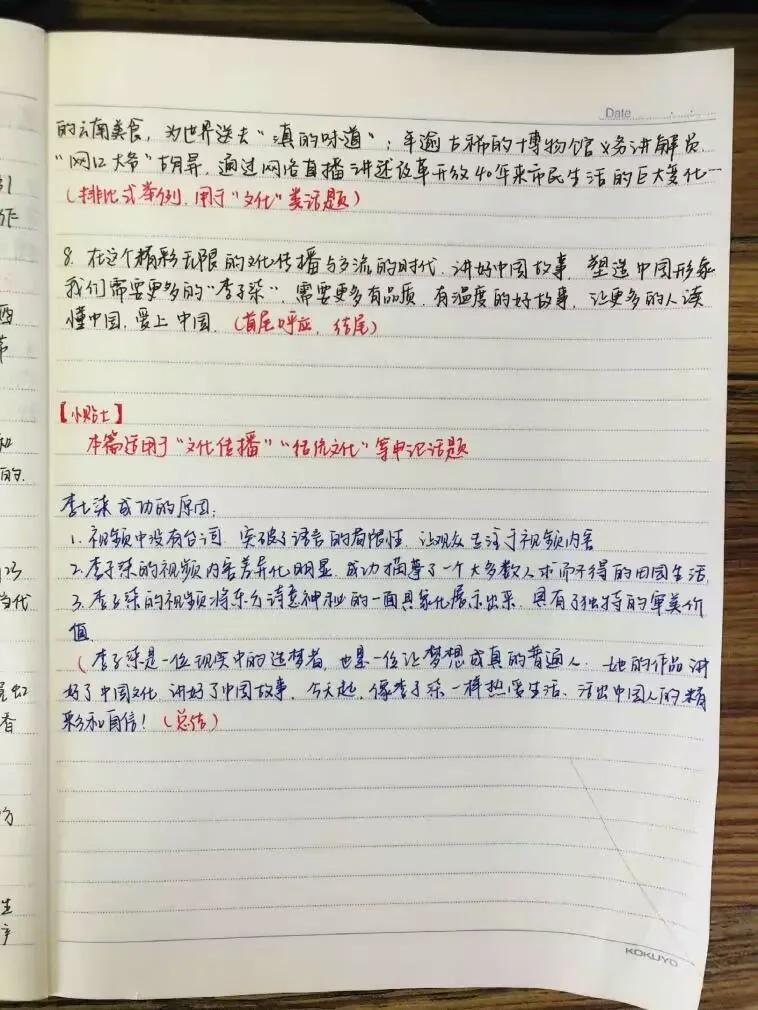 Date
的云南美食，为世界送去“滇的味道”；年逾古稀的博物馆义务讲解员、
“网红大爷”胡昇，通过网络直播讲述改革开放40年来市民生活的巨大变化…
（排比式举例，用于“文化”类话题）
8. 在这个精彩无限的文化传播与交流的时代，讲好中国故事，塑造中国形象
我们需要更多的“李子柒”，需要更多有品质、有温度的好故事，让更多的人读
懂中国，爱上中国。（首尾呼应，结尾）
【小贴士】
本篇适用于“文化传播”“ 文化”等申论话题
李子柒成功的原因：
1. 视频中没有台词，突破了语言的局限性，让观众专注于视频内容
2. 李子柒的视频内容差异化明显，成功描摹了一个大多数人求而不得的田园生活，
3. 李子柒的视频将东方诗意神秘的一面具象化展示出来，具有了独特的审美价
值
（李子柒是一位现实中的造梦者，也是一位让梦想成真的普通人，她的作品讲
好了中国文化，讲好了中国故事，今天起，像李子柒一样热爱生活、活出中国人的精
彩和自信！（总结）
KOKUYO